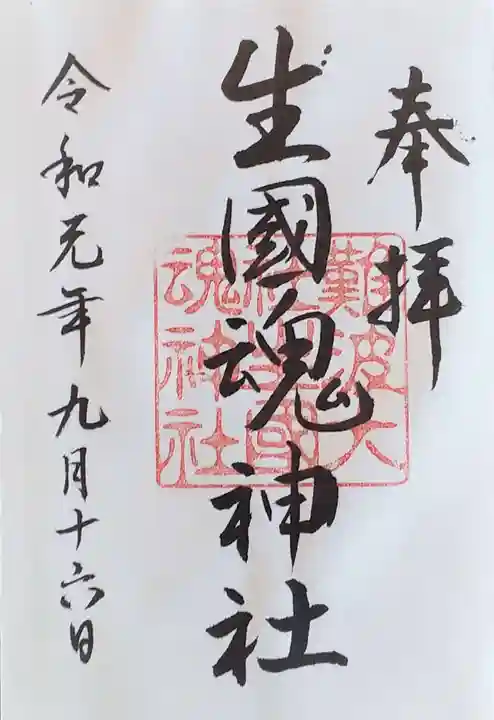 奉拝
生國魂神社
難波大
社生國
魂神社
令和元年九月十六日